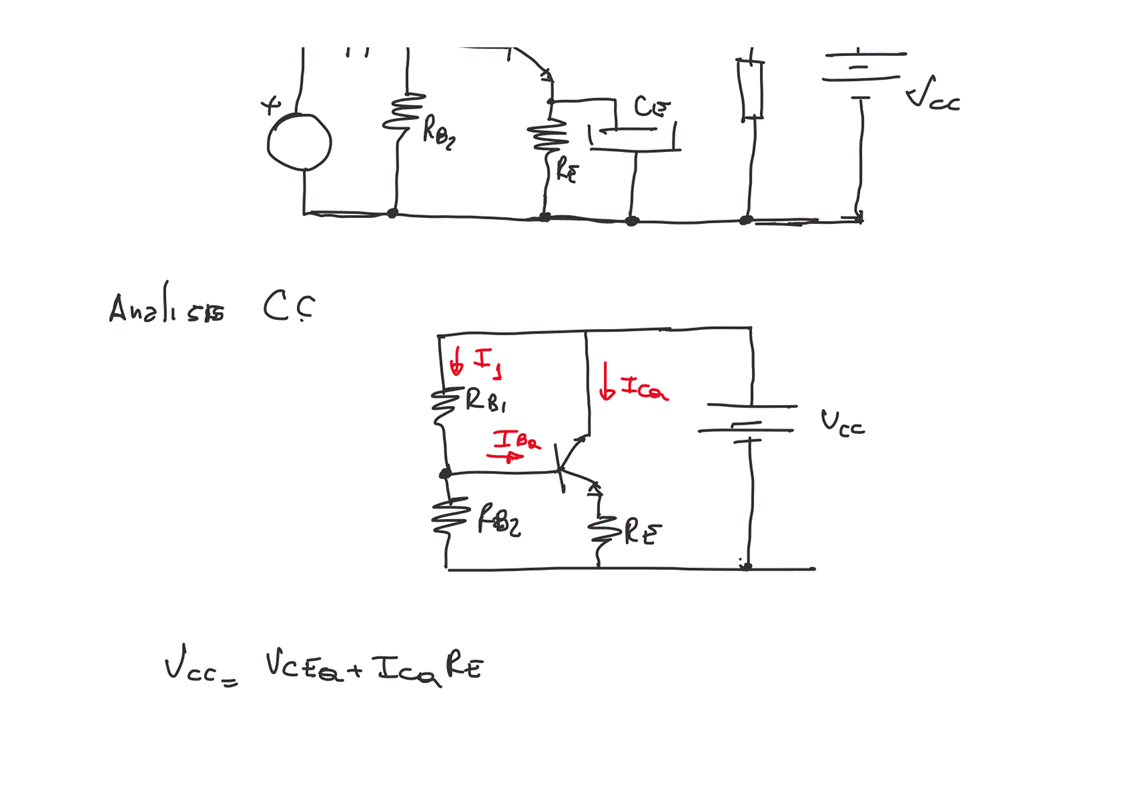 +
CE
VCC
RB2
RE
Analisis CC
I1
ICQ
RB1
IBQ
VCC
RB2
RE
VCC = VCEQ + ICQ RE